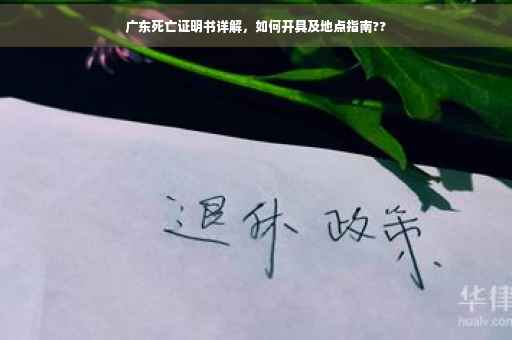 广东死亡证明书详解，如何开具及地点指南??
退休政策
华律
hualv.com